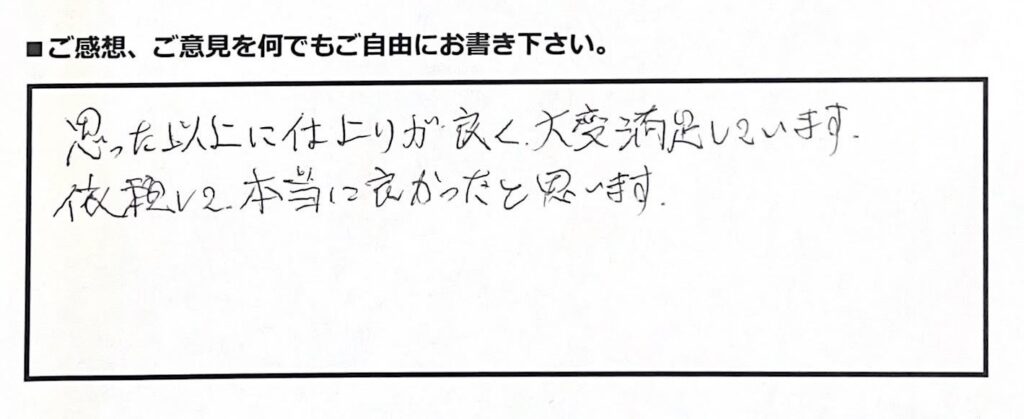 ■ご感想、ご意見を何でもご自由にお書き下さい。
思った以上に仕上りが良く、大変満足しています.
依頼して、本当に良かったと思います.